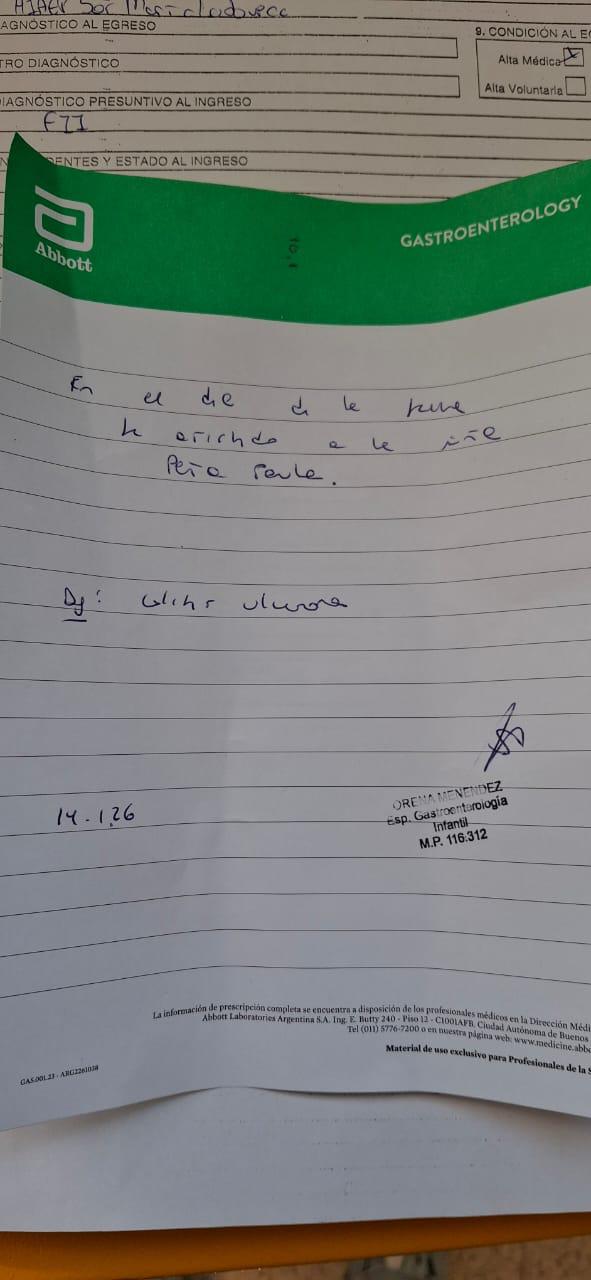 AGNÓSTICO AL EGRESO
9. CONDICIÓN AL E
Alta Médica X
TRO DIAGNÓSTICO
Alta Voluntaria
DIAGNÓSTICO PRESUNTIVO AL INGRESO
DENTES Y ESTADO AL INGRESO
Abbott
GASTROENTEROLOGY
En el die de le
a le niñe
Peña Paula.
Dg: Colitis ulcerosa
14-1.26
ORENA MENENDEZ
Esp. Gastroenterología
Infantil
M.P. 116.312
La información de prescripción completa se encuentra a disposición de los profesionales médicos en la Dirección Médi
Abbott Laboratories Argentina S.A. Ing. E. Butty 240 - Piso 12 - C1001AFB, Ciudad Autónoma de Buenos
Tel (011) 5776-7200 o en nuestra página web: www.medicine.abb
Material de uso exclusivo para Profesionales de la S
GAS.001.23 - ARG2261038